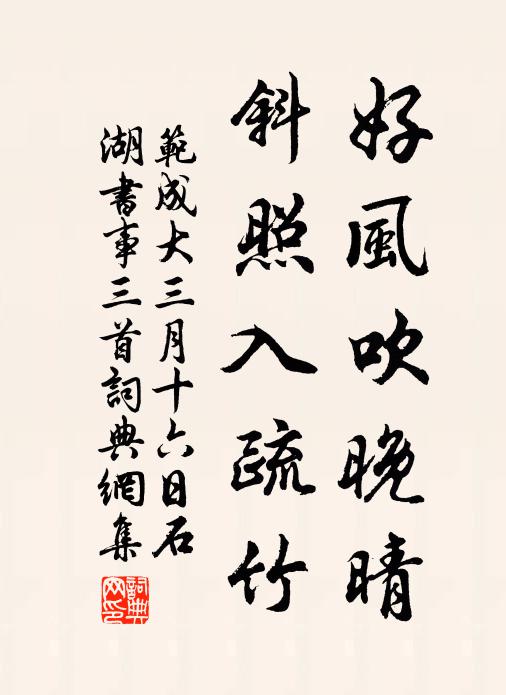 好風吹晚晴
斜照入疏竹
範成大三月十六日石
湖書事三首詞典網集
詞典
网印